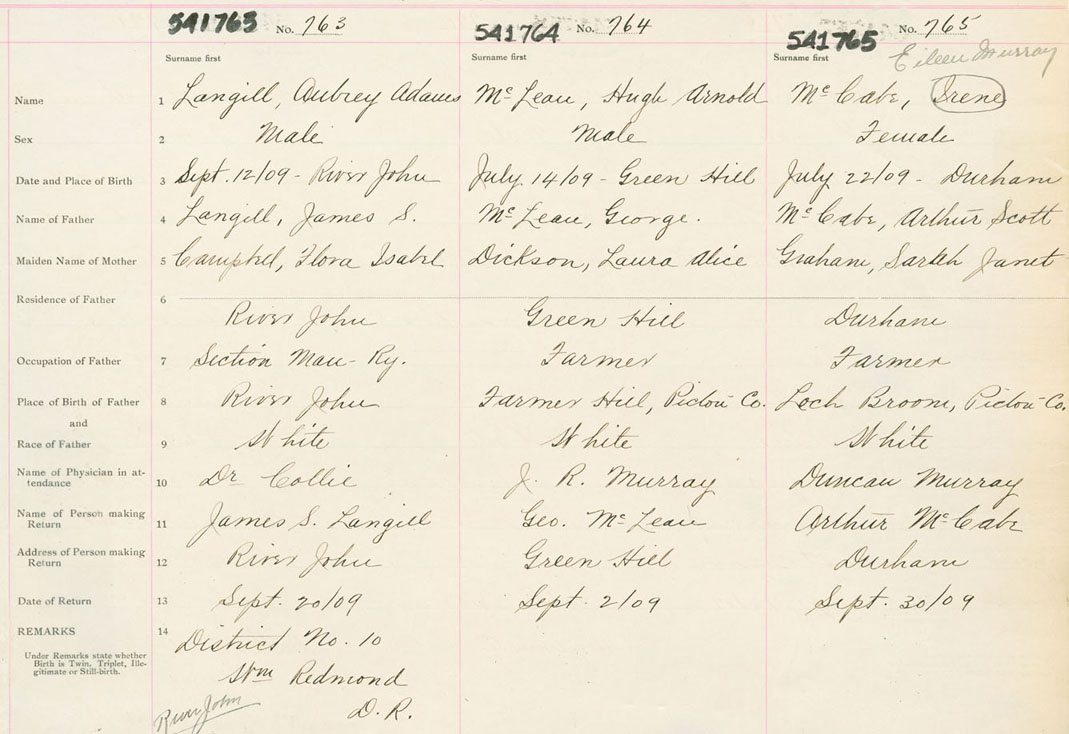 541763 No. 763 541764 No. 764 541765 No. 765
Eileen Murray
Surname first Surname first Surname first
Name 1 Langill, Aubrey Adams Mc Lean, Hugh Arnold Mc Cabe, Irene
Sex 2 Male Male Female
Date and Place of Birth 3 Sept. 12/09 - River John July 14/09 - Green Hill July 22/09 - Durham
Name of Father 4 Langill, James S. Mc Lean, George. Mc Cabe, Arthur Scott
Maiden Name of Mother 5 Campbell, Flora Isabel Dickson, Laura Alice Graham, Sarah Janet
Residence of Father 6
River John Green Hill Durham
Occupation of Father 7 Section Man - Ry. Farmer Farmer
Place of Birth of Father 8 River John Farmer Hill, Pictou Co. Loch Broom, Pictou Co.
and
Race of Father 9 White White White
Name of Physician in at-
tendance 10 Dr Collie J. R. Murray Duncan Murray
Name of Person making
Return 11 James S. Langill Geo. Mc Lean Arthur Mc Cabe
Address of Person making
Return 12 River John Green Hill Durham
Date of Return 13 Sept. 20/09 Sept. 2/09 Sept. 30/09
REMARKS 14 District No. 10
Under Remarks state whether
Birth is Twin, Triplet, Ille-
gitimate or Still-birth.
Wm Redmond
D. R.
River John